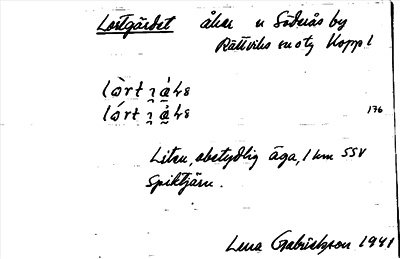 Lortgärdet åker n Söderås by
Rättviks sn o tg Koppl
176
Liten, obetydlig äga, 1 km SSV
Spiktjärn.
Lena Gabrielsson 1941